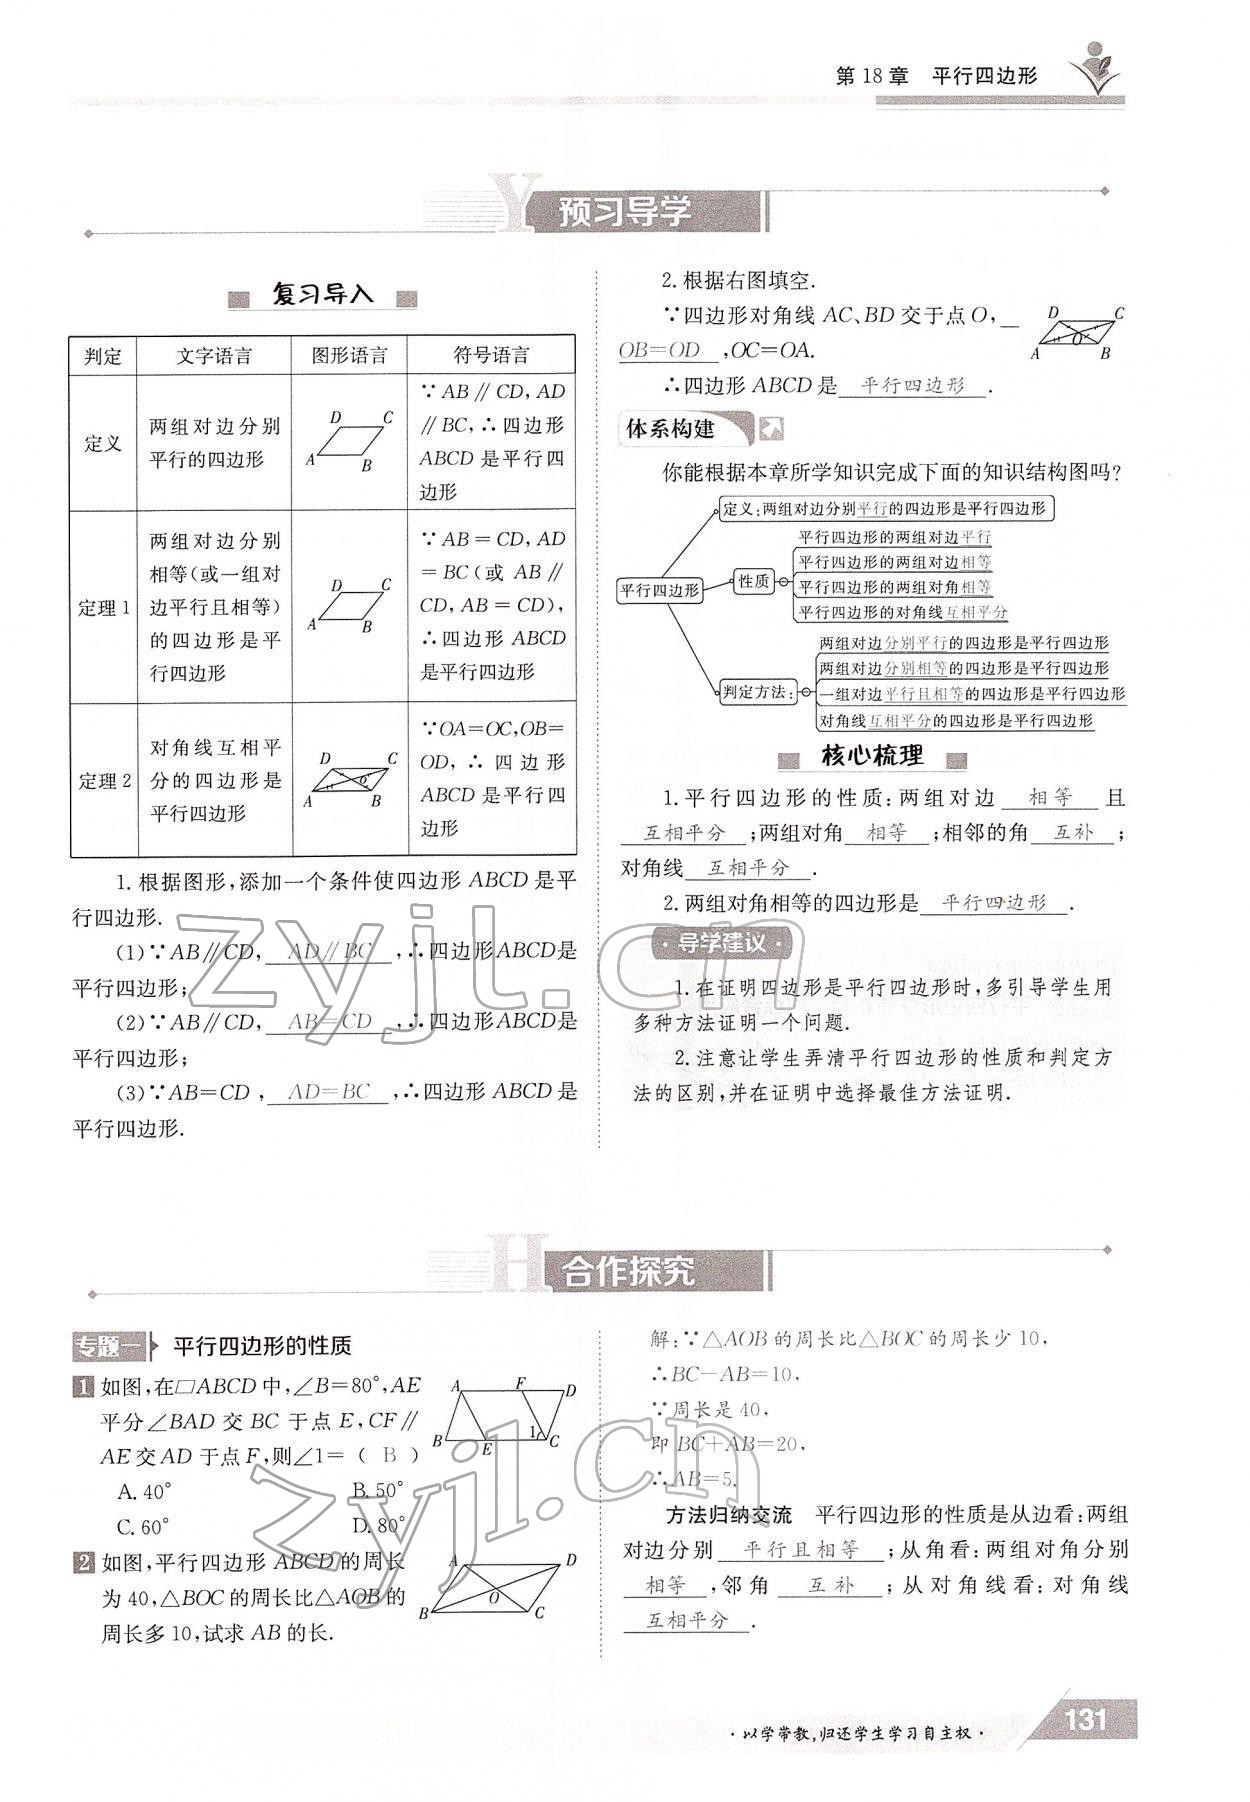 第18章 平行四边形
Y 预习导学
复习导入
判定 文字语言 图形语言 符号语言
定义
两组对边分别
平行的四边形
D C
A B
∵AB∥CD,AD
∥BC,∴四边形
ABCD是平行四
边形
定理1
两组对边分别
相等(或一组对
边平行且相等)
的四边形是平
行四边形
D C
A B
∵AB=CD,AD
=BC(或 AB∥
CD,AB=CD),
∴四边形ABCD
是平行四边形
定理2
对角线互相平
分的四边形是
平行四边形
D C
O
A B
∵OA=OC,OB=
OD,∴四边形
ABCD是平行四
边形
1.根据图形,添加一个条件使四边形ABCD是平
行四边形.
(1)∵AB∥CD, AD∥BC ,∴四边形ABCD是
平行四边形;
(2)∵AB∥CD, AB=CD ,∴四边形ABCD是
平行四边形;
(3)∵AB=CD, AD=BC ,∴四边形ABCD是
平行四边形.
2.根据右图填空.
∵四边形对角线AC、BD交于点O,
OB=OD ,OC=OA.
∴四边形ABCD是 平行四边形 .
D C
O
A B
体系构建
你能根据本章所学知识完成下面的知识结构图吗?
定义:两组对边分别平行的四边形是平行四边形
平行四边形的两组对边平行
平行四边形的两组对边相等
平行四边形 性质
平行四边形的两组对角相等
平行四边形的对角线互相平分
两组对边分别平行的四边形是平行四边形
两组对边分别相等的四边形是平行四边形
判定方法:
一组对边平行且相等的四边形是平行四边形
对角线互相平分的四边形是平行四边形
核心梳理
1.平行四边形的性质:两组对边 相等 且
互相平分 ;两组对角 相等 ;相邻的角 互补 ;
对角线 互相平分 .
2.两组对角相等的四边形是 平行四边形 .
·导学建议·
1.在证明四边形是平行四边形时,多引导学生用
多种方法证明一个问题.
2.注意让学生弄清平行四边形的性质和判定方
法的区别,并在证明中选择最佳方法证明.
H 合作探究
专题一 平行四边形的性质
1 如图,在□ABCD中,∠B=80°,AE
平分∠BAD交BC于点E,CF∥
AE交AD于点F,则∠1=( B )
A.40° B.50°
C.60° D.80°
A F D
B E 1 C
2 如图,平行四边形ABCD的周长
为40,△BOC的周长比△AOB的
周长多10,试求AB的长.
A D
O
B C
解:∵△AOB的周长比△BOC的周长少10,
∴BC-AB=10,
∵周长是40,
即BC+AB=20,
∴AB=5.
方法归纳交流 平行四边形的性质是从边看:两组
对边分别 平行且相等 ;从角看:两组对角分别
相等 ,邻角 互补 ;从对角线看:对角线
互相平分 .
zyjl.cn
zyjl.cn
·以学带教,归还学生学习自主权·
131